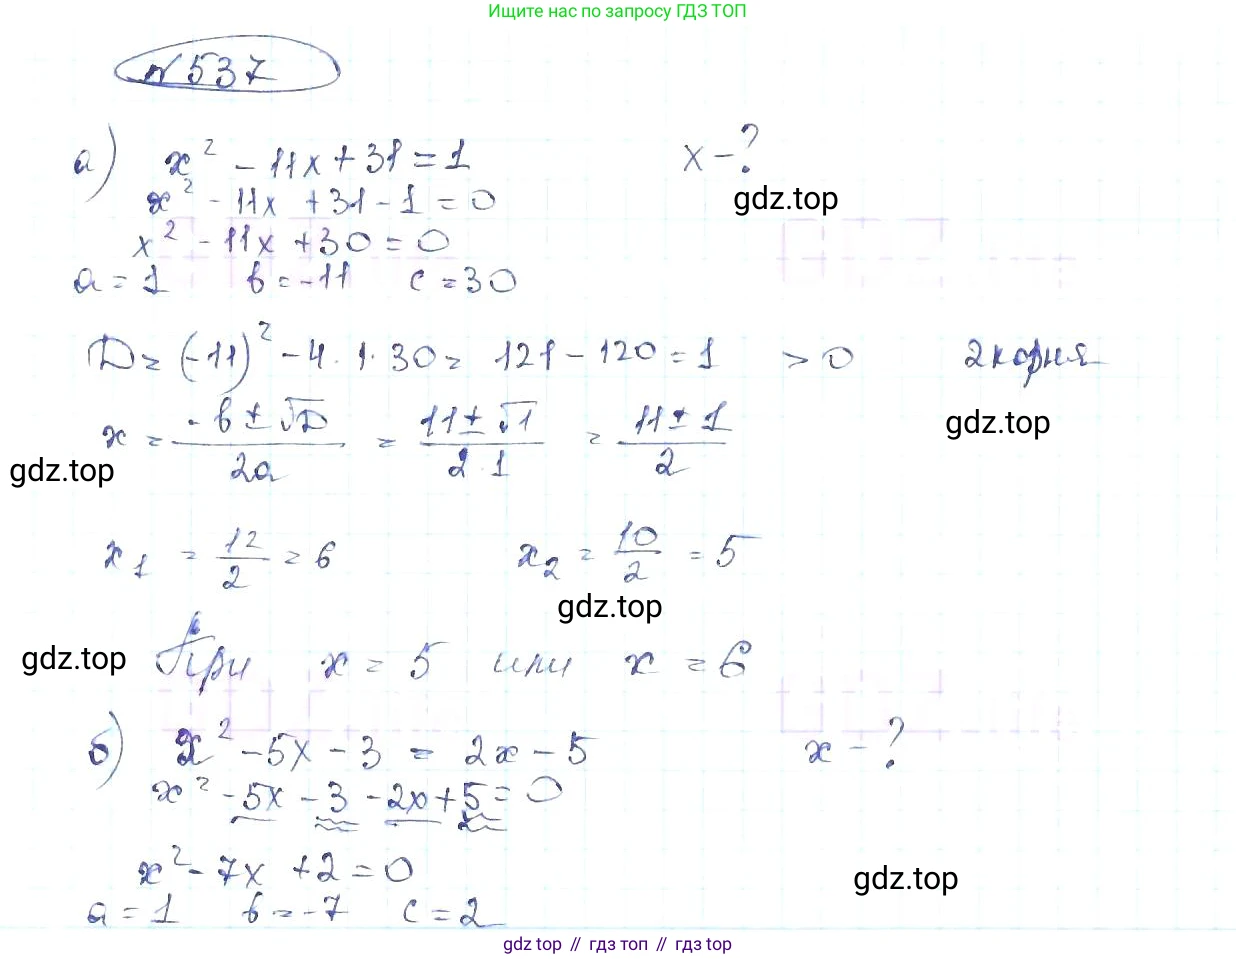 Ищите нас по запросу ГДЗ ТОП
№ 537
а) x² - 11x + 31 = 1 x - ?
gdz.top
x² - 11x + 31 - 1 = 0
x² - 11x + 30 = 0
a = 1 b = -11 c = 30
D = (-11)² - 4 · 1 · 30 = 121 - 120 = 1 > 0 2 корня
gdz.top
x = (-b ± √D)/(2a) = (11 ± √1)/(2·1) = (11 ± 1)/2
gdz.top
x₁ = 12/2 = 6 x₂ = 10/2 = 5
gdz.top
gdz.top
При x = 5 или x = 6
б) x² - 5x - 3 = 2x - 5 x - ?
x² - 5x - 3 - 2x + 5 = 0
x² - 7x + 2 = 0
gdz.top
a = 1 b = -7 c = 2
gdz top // гдз топ // гдз top